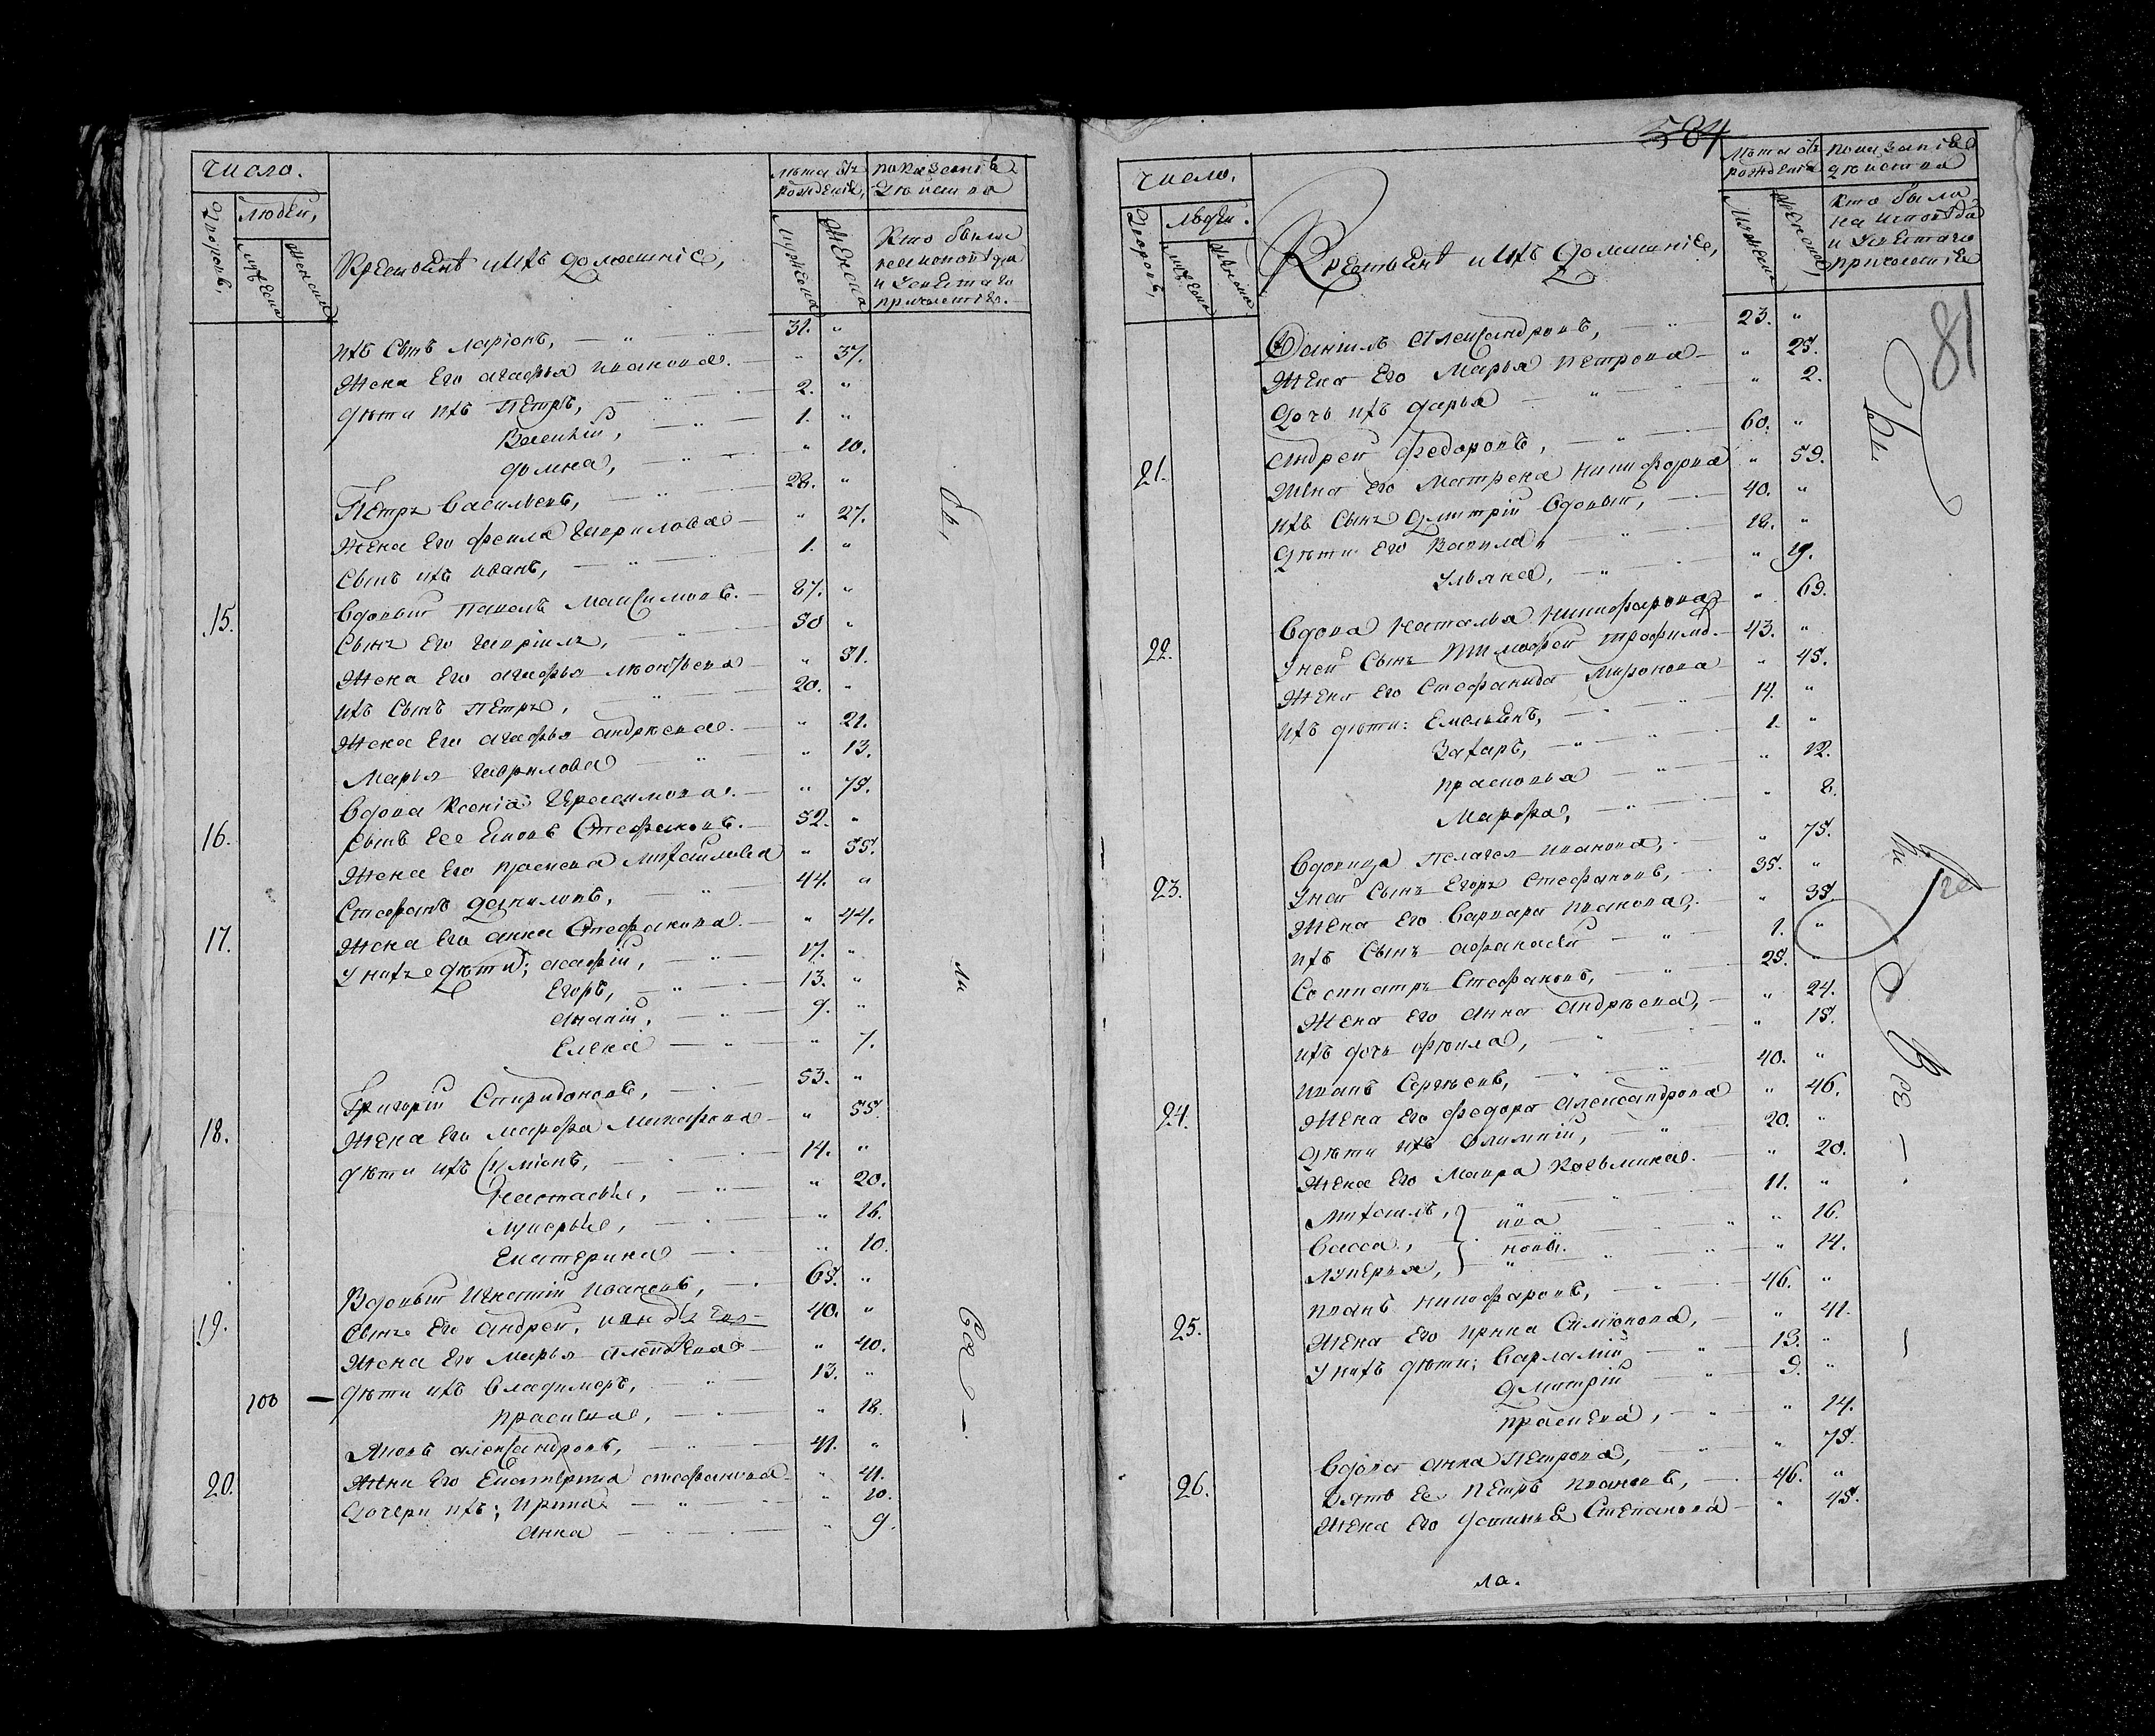 число.
Дворовъ,
людей,
мужеска
женска
Крестьянѣ и ихъ домашніе,
лѣта отъ рожденія,
мужеска
женска
показаніе дѣйства
Кто были на исповѣди и Святаго причастія.
ихъ Сынъ ларіонъ, 31. "
Жена Его агафья иванова. " 37.
дѣти ихъ Петръ, 2. "
Василій, 1. "
домна, " 10.
Петръ Васильевъ, 28. "
Жена Его фекла Гаврилова " 27.
Сынъ ихъ иванъ, 1. "
15. вдовый павелъ Максимовъ. 87. "
Сынъ Его гавріилъ, 50 "
Жена Его агафья Матфеева " 51.
ихъ Сынъ Петръ, 20. "
Жена Его агафья андрѣева. " 21.
Марья гаврилова " 13.
16. вдова Ксенія Герасимова. " 79.
Сынъ Ее Яковъ Стефановъ. 52. "
Жена Его прасковья Михайлова " 55.
17. Стефанъ даниловъ, 44. "
Жена Его анна Стефанова. " 44.
у нихъ дѣти; агафій, 17. "
Егоръ, 13. "
ананій, 9. "
Елена " 7.
18. Григорій Спиридоновъ, 53. "
Жена Его марфа Никифорова " 55.
дѣти ихъ Симіонъ, 14. "
настасья, " 20.
лукерья, " 16.
Екатерина " 10.
19. Вдовый Игнатій Ивановъ, 65. "
Сынъ Его андрей, 40. "
Жена Его Марья алексѣева " 40.
100 дѣти ихъ владимеръ, 13. "
прасковья, " 18.
20. Яковъ александровъ, 41. "
Жена Его Екатерина стефанова " 41.
дочери ихъ; ирина " 10.
анна " 9.
бы,
ли
все
584
81
число.
Дворовъ,
людей.
мужеска
женска
Крестьянѣ и ихъ домашніе,
лѣта отъ рожденія
мужеска
женска
показаніе дѣйства
кто были на исповѣди и Святаго причастія
Даніилъ Александровъ, 23. "
Жена Его Марья петрова " 25.
дочь ихъ дарья " 2.
21. андрей федоровъ, 60. "
Жена Его Матрена никифорова " 59.
ихъ Сынъ Дмитрій вдовый, 40. "
дѣти Его вавила, 18. "
ульяна, " 19.
22. вдова наталья никифорова " 69.
у ней Сынъ Тимофей трофимо. 43. "
Жена Его Стефанида миронова " 45.
ихъ дѣти: Емельянъ, 14. "
Захаръ, 1. "
прасковья " 12.
Марфа, " 8.
23. вдовица пелагея иванова, " 75.
у ней Сынъ Егоръ Стефановъ, 35. "
Жена Его варвара иванова, " 35.
ихъ Сынъ афанасій 1. "
Сосипатръ Стефановъ, 25. "
Жена Его анна андрѣева, " 24.
ихъ дочь фекла, " 15.
24. иванъ Сергѣевъ, 40. "
Жена Его федора александрова " 46.
дѣти ихъ олимпій, 20. "
Жена Его Мавра Козьмина. " 20.
Михаилъ, 11. "
васса, ива " 16.
лукерья, новы. " 14.
25. иванъ никифоровъ, 46. "
Жена Его ирина Симіонова, " 41.
у нихъ дѣти; варламій 13. "
дмитрій 9. "
прасковья, " 14.
26. вдова анна Петрова, " 75.
зять Ее Петръ ивановъ, 46. "
Жена Его устинья Степанова " 45.
ла.
бы
ли
все